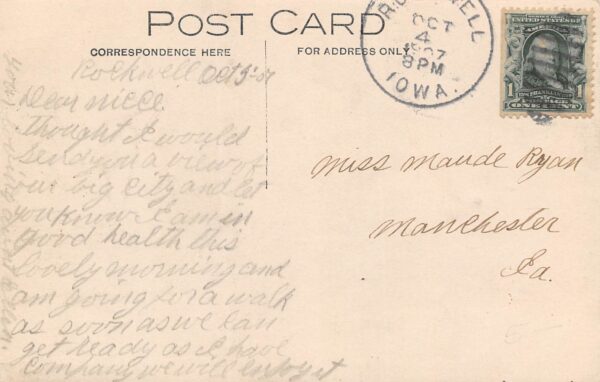 POST CARD
CORRESPONDENCE HERE
FOR ADDRESS ONLY
ROCKWELL
OCT
4
1907
8 PM
IOWA.
UNITED STATES OF AMERICA
FRANKLIN
1 1
ONE CENT
Rockwell Oct 3-07
Dear niece
Thought I would
send you a view of
our big city and let
you know I am in
good health this
lovely morning and
am going for a walk
as soon as we can
get ready as I have
company we will enjoy it
Miss Maude Ryan
Manchester
Ia.